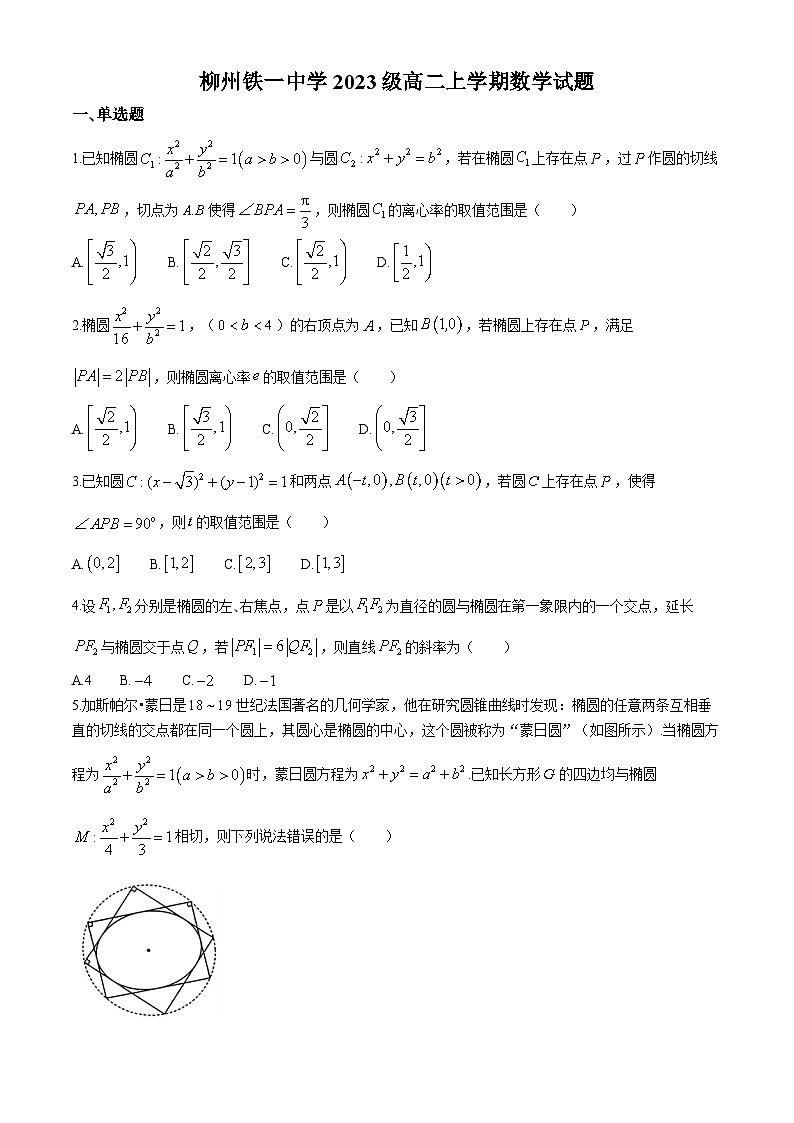 柳州铁一中学2023级高二上学期数学试题
一、单选题
1.已知椭圆 $C_1:\frac{x^2}{a^2}+\frac{y^2}{b^2}=1(a>b>0)$ 与圆 $C_2:x^2+y^2=b^2$，若在椭圆 $C_1$ 上存在点 P，过 P 作圆的切线
PA, PB，切点为 A.B 使得 $\angle BPA=\frac{\pi}{3}$，则椭圆 $C_1$ 的离心率的取值范围是（ ）
A. $\left[\frac{\sqrt{3}}{2},1\right)$ B. $\left[\frac{\sqrt{2}}{2},\frac{\sqrt{3}}{2}\right]$ C. $\left[\frac{\sqrt{2}}{2},1\right)$ D. $\left[\frac{1}{2},1\right)$
2.椭圆 $\frac{x^2}{16}+\frac{y^2}{b^2}=1$，（$0<b<4$）的右顶点为 A，已知 $B(1,0)$，若椭圆上存在点 P，满足
$|PA|=2|PB|$，则椭圆离心率 e 的取值范围是（ ）
A. $\left[\frac{\sqrt{2}}{2},1\right)$ B. $\left[\frac{\sqrt{3}}{2},1\right)$ C. $\left(0,\frac{\sqrt{2}}{2}\right]$ D. $\left(0,\frac{\sqrt{3}}{2}\right]$
3.已知圆 $C:(x-\sqrt{3})^2+(y-1)^2=1$ 和两点 $A(-t,0),B(t,0)(t>0)$，若圆 C 上存在点 P，使得
$\angle APB=90°$，则 t 的取值范围是（ ）
A. $(0,2]$ B. $[1,2]$ C. $[2,3]$ D. $[1,3]$
4.设 $F_1,F_2$ 分别是椭圆的左、右焦点，点 P 是以 $F_1F_2$ 为直径的圆与椭圆在第一象限内的一个交点，延长
$PF_2$ 与椭圆交于点 Q，若 $|PF_1|=6|QF_2|$，则直线 $PF_2$ 的斜率为（ ）
A.4 B. −4 C. −2 D. −1
5.加斯帕尔•蒙日是18～19世纪法国著名的几何学家，他在研究圆锥曲线时发现：椭圆的任意两条互相垂
直的切线的交点都在同一个圆上，其圆心是椭圆的中心，这个圆被称为“蒙日圆”（如图所示）.当椭圆方
程为 $\frac{x^2}{a^2}+\frac{y^2}{b^2}=1(a>b>0)$ 时，蒙日圆方程为 $x^2+y^2=a^2+b^2$.已知长方形 G 的四边均与椭圆
$M:\frac{x^2}{4}+\frac{y^2}{3}=1$ 相切，则下列说法错误的是（ ）